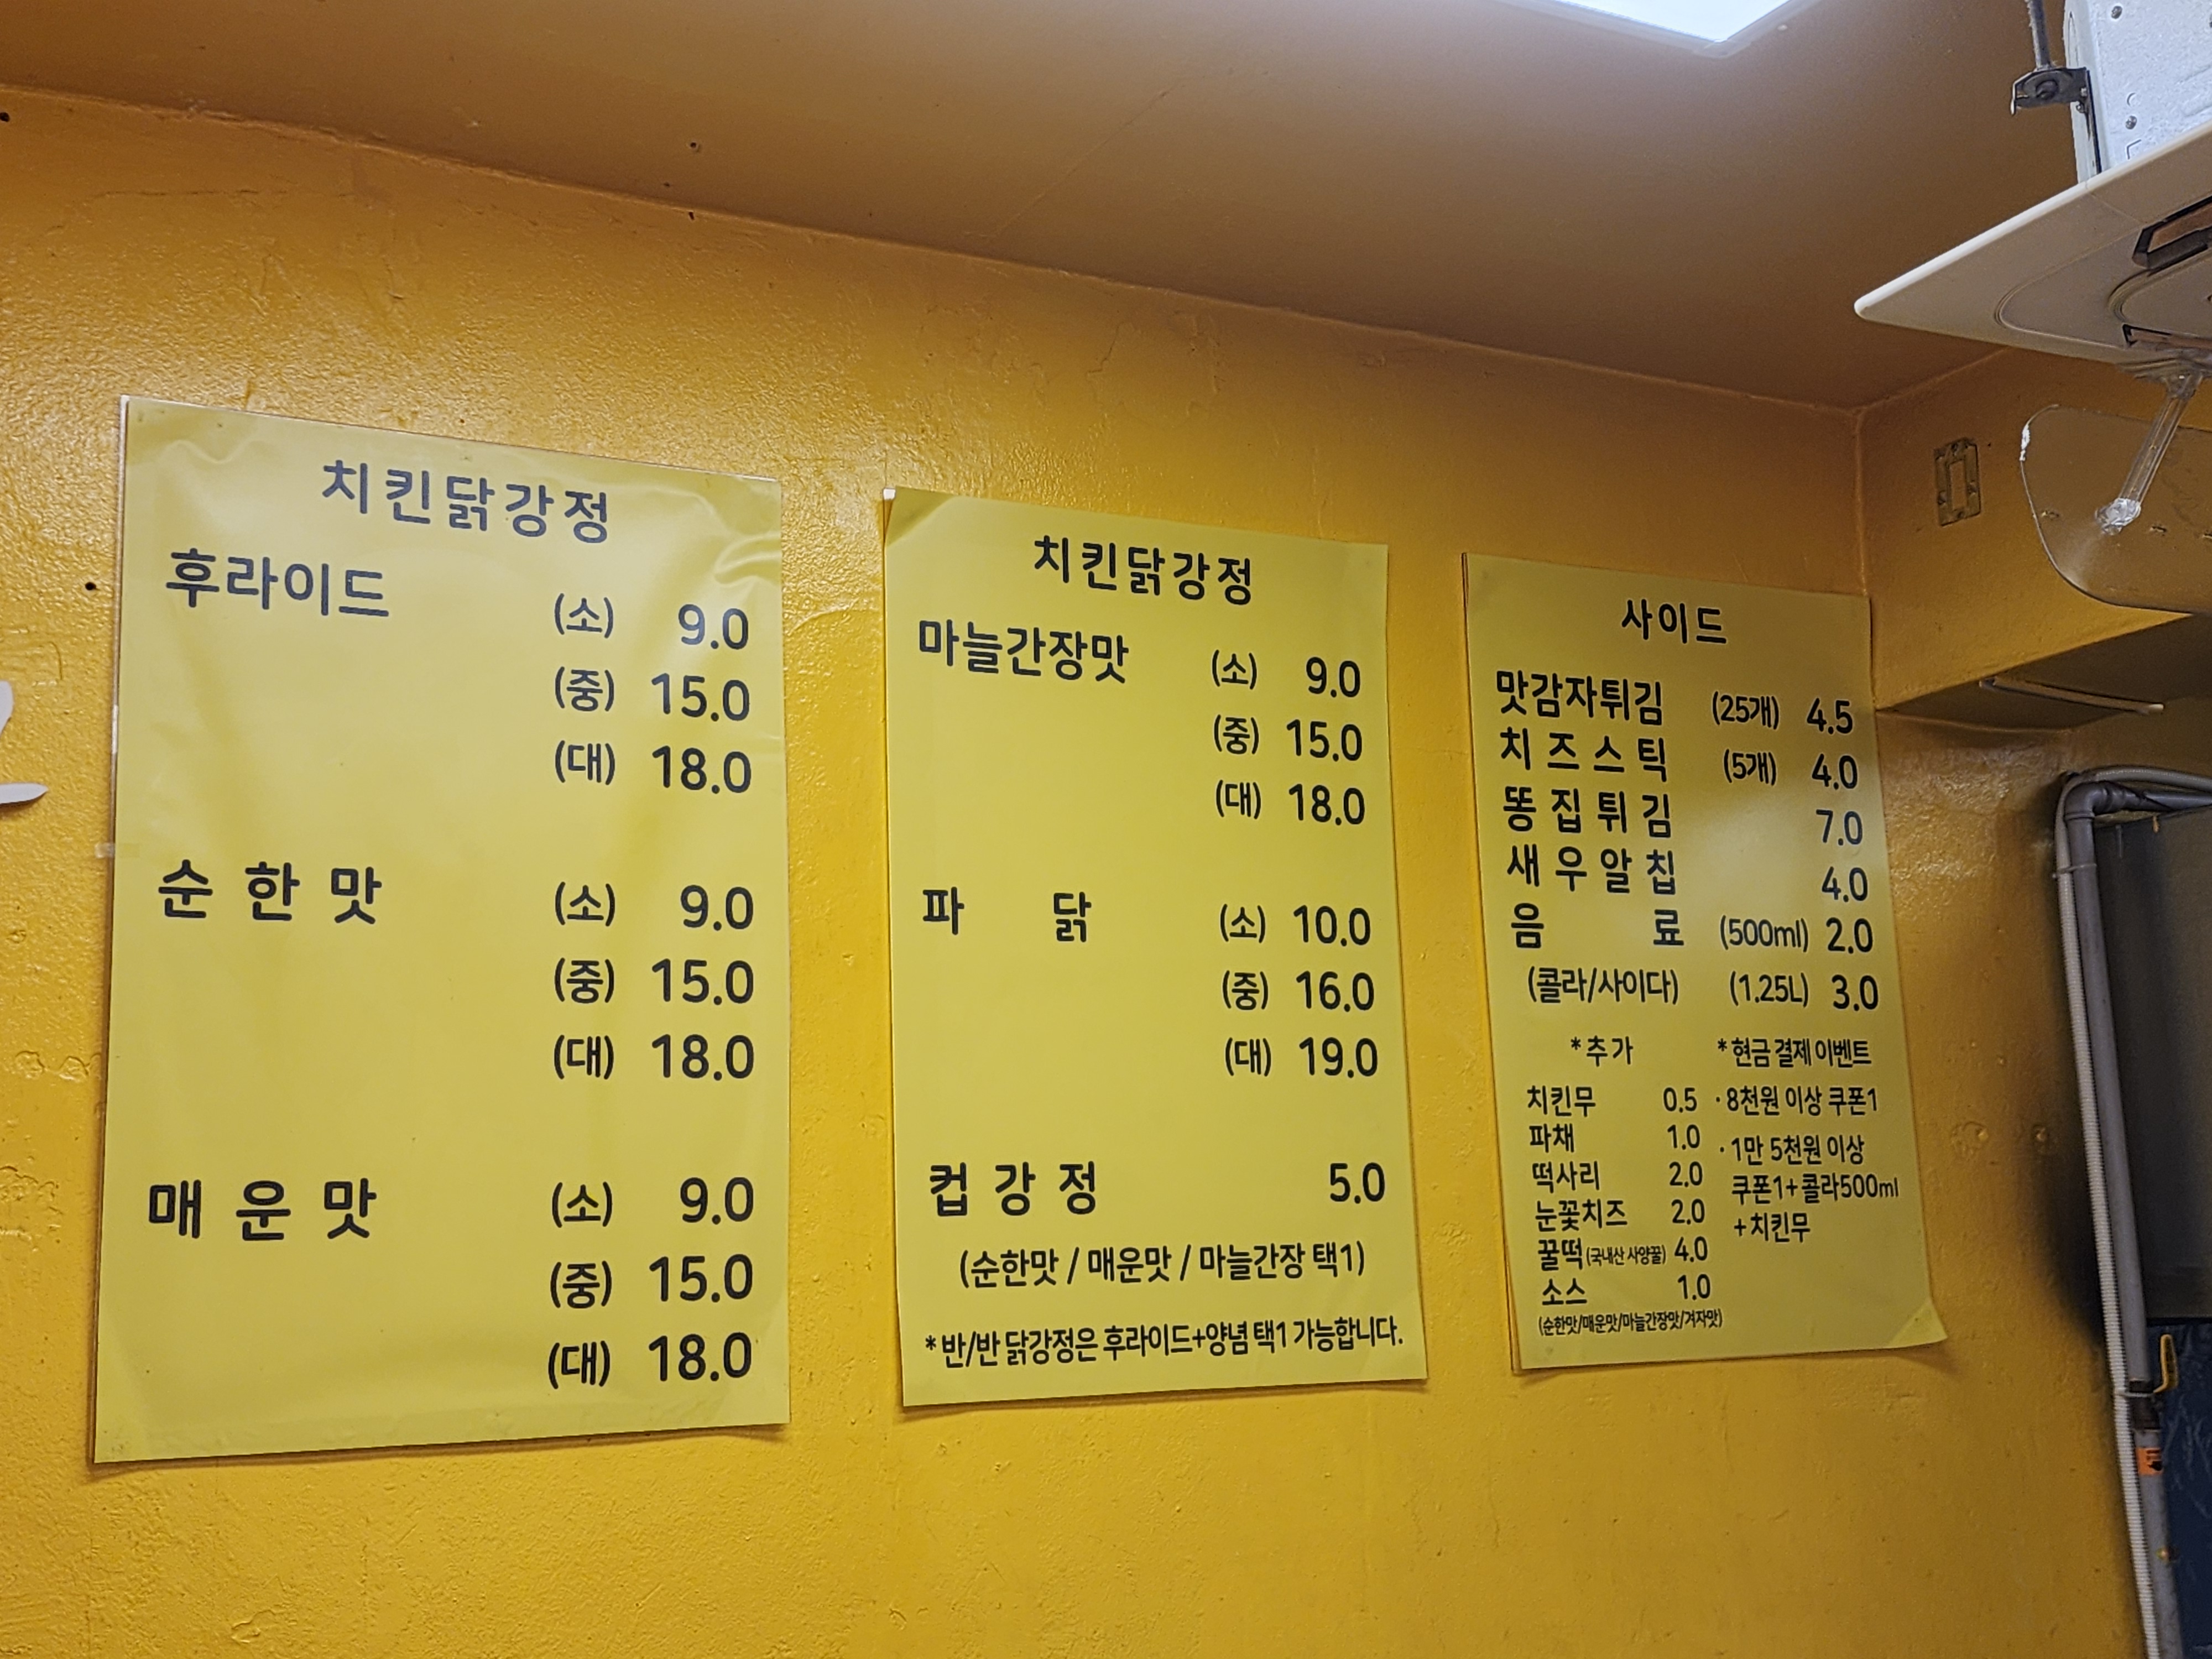 치킨닭강정
후라이드 (소) 9.0
(중) 15.0
(대) 18.0
순 한 맛 (소) 9.0
(중) 15.0
(대) 18.0
매 운 맛 (소) 9.0
(중) 15.0
(대) 18.0
치킨닭강정
마늘간장맛 (소) 9.0
(중) 15.0
(대) 18.0
파 닭 (소) 10.0
(중) 16.0
(대) 19.0
컵 강 정 5.0
(순한맛 / 매운맛 / 마늘간장 택1)
*반/반 닭강정은 후라이드+양념 택1 가능합니다.
사이드
맛감자튀김 (25개) 4.5
치 즈 스 틱 (5개) 4.0
똥 집 튀 김 7.0
새 우 알 칩 4.0
음 료 (500ml) 2.0
(콜라/사이다) (1.25L) 3.0
*추가
치킨무 0.5
파채 1.0
떡사리 2.0
눈꽃치즈 2.0
꿀떡(국내산 사양꿀) 4.0
소스 1.0
(순한맛/매운맛/마늘간장맛/겨자맛)
*현금 결제 이벤트
·8천원 이상 쿠폰1
·1만 5천원 이상
쿠폰1+콜라500ml
+치킨무